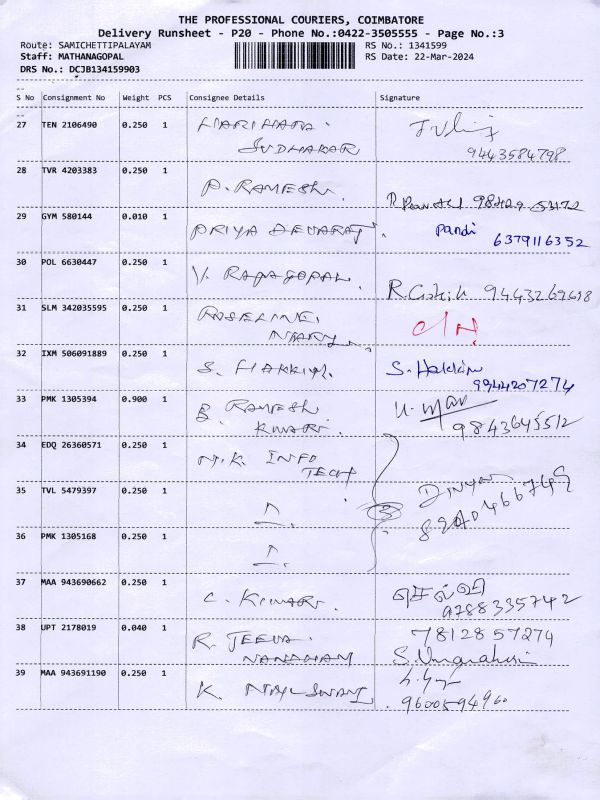 THE PROFESSIONAL COURIERS, COIMBATORE
Delivery Runsheet - P20 - Phone No.:0422-3505555 - Page No.:3
Route: SAMICHETTIPALAYAM RS No.: 1341599
Staff: MATHANAGOPAL RS Date: 22-Mar-2024
DRS No.: DCJB134159903
S No Consignment No Weight PCS Consignee Details Signature
27 TEN 2106490 0.250 1 HARIHARA
SUDHAKAR 9443584798
28 TVR 4203383 0.250 1 P. RAMESH
29 GYM 580144 0.010 1 PRIYA DEVARAJ Pandi
6379116352
30 POL 6630447 0.250 1 V. RAJAGOPAL
31 SLM 342035595 0.250 1 ROSELINE
MARY
32 IXM 506091889 0.250 1 S. HAKKIM S. Hakkim
9944207274
33 PMK 1305394 0.900 1 B. RAMESH
KUMAR 9843645512
34 EDQ 26360571 0.250 1 M.K. INFO
TECH
35 TVL 5479397 0.250 1
36 PMK 1305168 0.250 1
37 MAA 943690662 0.250 1 C. KUMAR செல்வி
9788335742
38 UPT 2178019 0.040 1 R. JEEVA 7812857274
NANDHAM
39 MAA 943691190 0.250 1 K.
9600594960